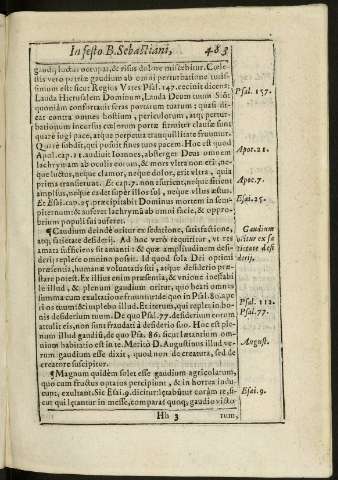 In festo B. Sebastiani, 483
gaudij luctus occupat, & risus dolore miscebitur. Cœle-
stis vero patriæ gaudium ab omni perturbatione tutis-
simum est: sicut Regius Vates Psal. 147. cecinit dicens:
Lauda Hierusalem Dominum, Lauda Deum tuum Sion:
quoniam confortauit seras portarum tuarum: quasi di-
cat contra omnes hostium, periculorum, atq; pertur-
bationum incursus cælorum portæ firmiter clausæ sunt
quare iugi pace, atque perpetua tranquillitate fruuntur.
Quare subdit, qui posuit fines tuos pacem. Hoc est quod
Apol. cap. 21. audiuit Ioannes, absterget Deus omnem
lachrymam ab oculis eorum, & mors vltra non erit, ne-
que luctus, neque clamor, neque dolor, erit vltra, quia
prima transierunt. Et cap. 7. non esurient, neque sitient
amplius, neque cadet super illos sol, neque vllus æstus.
Et Esai. cap. 25. præcipitabit Dominus mortem in sem-
piternum: & auferet lachrymã ab omni facie, & oppro-
brium populi sui auferet.
¶ Gaudium deindè oritur ex sedatione, satisfactione,
atq; satietate desiderij. Ad hoc verò requiritur, vt res
amata sufficiens sit amanti: & quæ amplitudinem desi-
derij replere omnino possit. Id quod sola Dei optimi
præsentia, humanæ voluntatis sui, atque desiderio præ-
stare potest. Ex illius enim præsentia, & vnione inestabi-
le illud, & plenum gaudium oritur, quo beari omnes
summa cum exultatione fruuntur: de quo in Psal. 80. ape-
ri os tuum & implebo illud. Et iterum, qui replet in bo-
nis desiderium tuum. De quo Psal. 77. desiderium eorum
attulit eis, non sunt fraudati à desiderio suo. Hoc est ple-
num illud gaudiũ, de quo Psa. 86. sicut lætantium om-
nium habitatio est in te. Meritò D. Augustinus illud ve-
rum gaudium esse dixit, quod non de creatura, sed de
creatore suscipitur.
¶ Magnum quidem solet esse gaudium agricolarum,
quo cum fructus optatos percipiunt, & in horrea indu-
cunt, exultant. Sic Esai. 9. dicitur: lætabũtur corâm te, si-
cut qui lætantur in messe, comparat quoq; gaudio victo
Hh 3 rum,
Psal. 157.
Apot. 21.
Apoc. 7.
Esai. 25.
Gaudium
oritur ex sa
tietate desi
derij.
Psal. 112.
Psal. 77.
August.
Esai. 9.